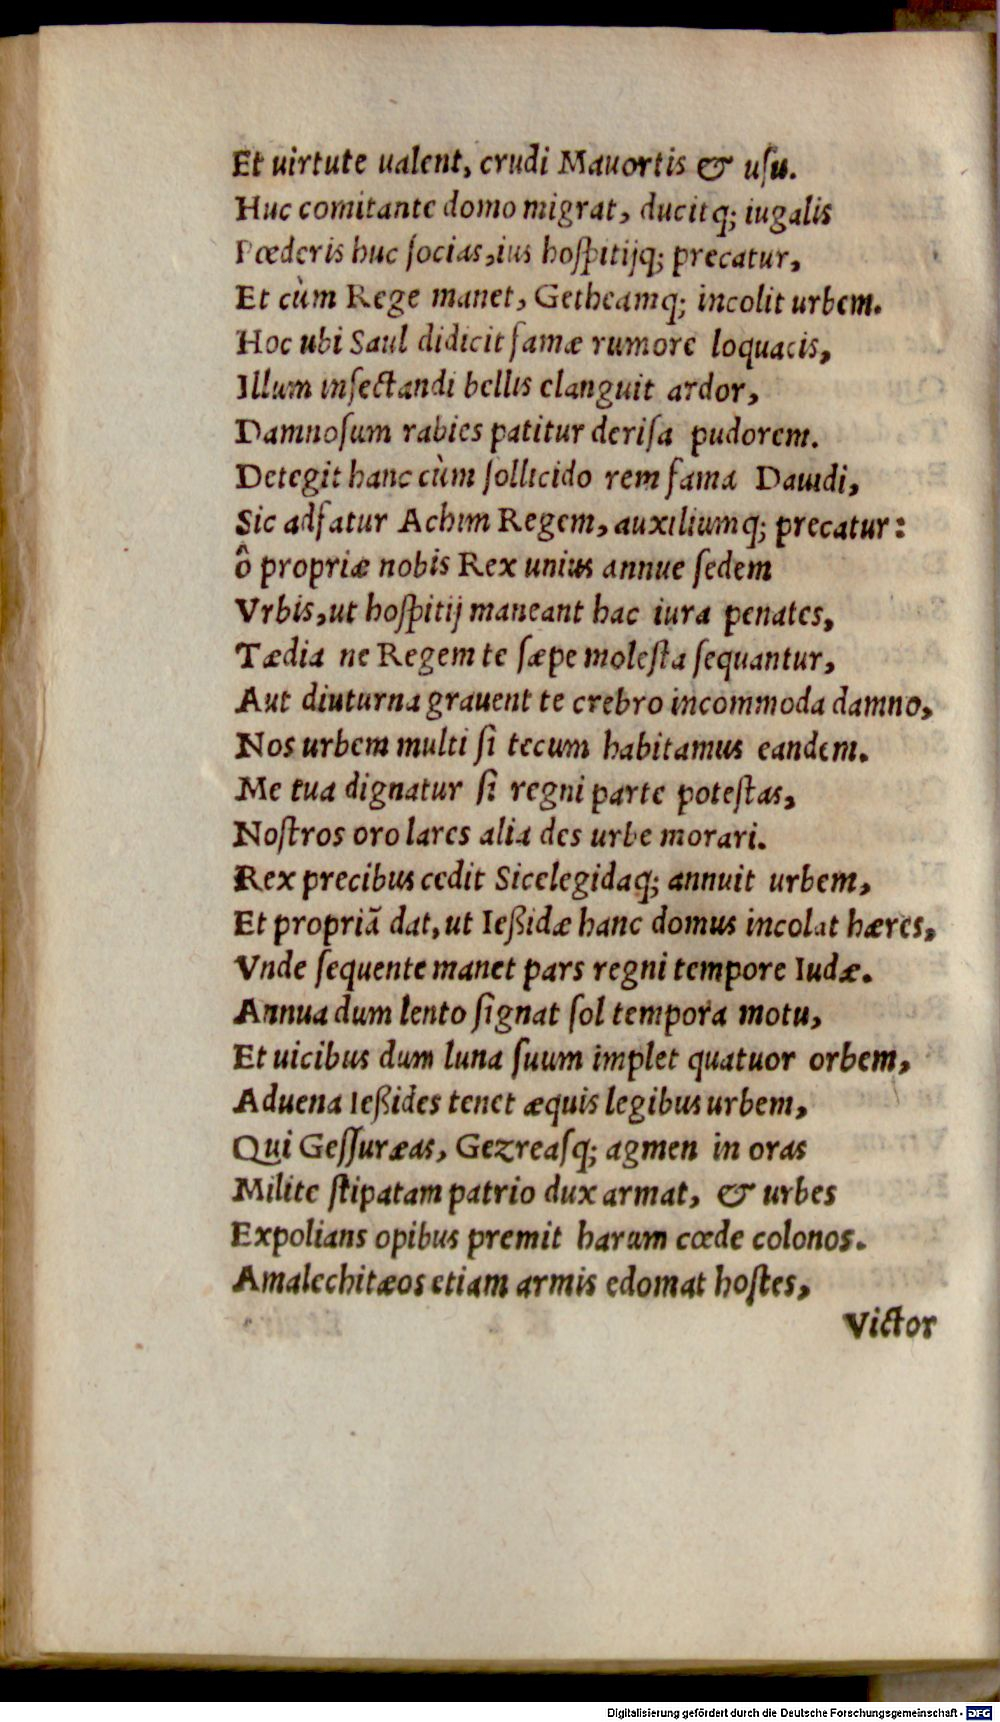 Et uirtute ualent, crudi Mauortis & uſu.
Huc comitante domo migrat, ducitq; iugalis
Fœderis huc ſocias, ius hoſpitijq; precatur,
Et cùm Rege manet, Getheamq; incolit urbem.
Hoc ubi Saul didicit famæ rumore loquacis,
Illum inſectandi bellis elanguit ardor,
Damnoſum rabies patitur deriſa pudorem.
Detegit hanc cùm ſollicido rem fama Dauidi,
Sic adfatur Achim Regem, auxiliumq; precatur:
ô propriæ nobis Rex unius annue ſedem
Vrbis, ut hoſpitij maneant hac iura penates,
Tædia ne Regem te ſæpe moleſta ſequantur,
Aut diuturna grauent te crebro incommoda damno,
Nos urbem multi ſi tecum habitamus eandem.
Me tua dignatur ſi regni parte poteſtas,
Noſtros oro lares alia des urbe morari.
Rex precibus cedit Sicelegidaq; annuit urbem,
Et propriā dat, ut Ießidæ hanc domus incolat hæres,
Vnde ſequente manet pars regni tempore Iudæ.
Annua dum lento ſignat ſol tempora motu,
Et uicibus dum luna ſuum implet quatuor orbem,
Aduena Ießides tenet æquis legibus urbem,
Qui Geſſuræas, Gezreaſq; agmen in oras
Milite ſtipatam patrio dux armat, & urbes
Expolians opibus premit harum cœde colonos.
Amalechitæos etiam armis edomat hoſtes,
Victor
Digitalisierung gefördert durch die Deutsche Forschungsgemeinschaft - DFG